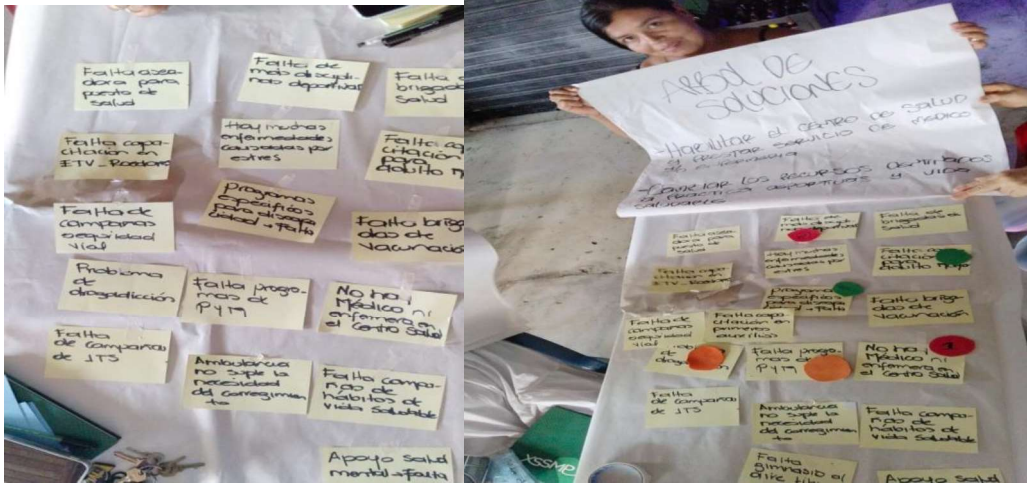 Falta asea-
dora para
puesto de
salud
Falta de
mas discipli-
nas deportivas
Falta
brigada
Salud
Falta capa-
citación en
ETV-Roedores
Hay muchas
enfermedades
causadas por
estres
Falta ca
citación
para
adulto m
Falta de
campañas
seguridad
vial
Programas
especificos
para discapa
cidad → Falta
Falta briga
das de
vacunació
Problema
de
drogadicción
Falta progra
mas de
PYM
No hay
Médico ni
enfermera en
el Centro Salud
Falta
de Campañas
de ITS
Ambulancia
no suple la
necesidad
del corregimien
to
Falta campa-
ñas de
hábitos de
Vida Saludable
Apoyo salud
mental → Falta
ARBOL DE
SOLUCIONES
- Habilitar el centro de salud
y prestar servicio de medico
y
los recursos destinados
a practica deportivas y vida
saludable
Falta asea-
dora para
puesto de
salud
Falta de
mas discipli
Falta de
brigadas de
Salud
Falta capa-
citación en
ETV-Roedores
Hay muchas
enfermedades
causadas por
estres
Falta capa
citación
para
adulto mayor
Programas
especificos
para discapa
cidad → Falta
Falta briga-
das de
vacunación
Falta de
campañas
seguridad
vial
Falta capa
citación en
primeros
auxilios
de
Falta progra
mas de
PYM
No hay
Médico ni
enfermera en
el Centro Salud
1
Falta
de Campañas
de ITS
Ambulancia
no suple la
necesidad
del corregimien
to
Falta campa-
ñas de
hábitos de
Vida Saludable
Falta
gimnasio al
aire libre
Apoyo salud